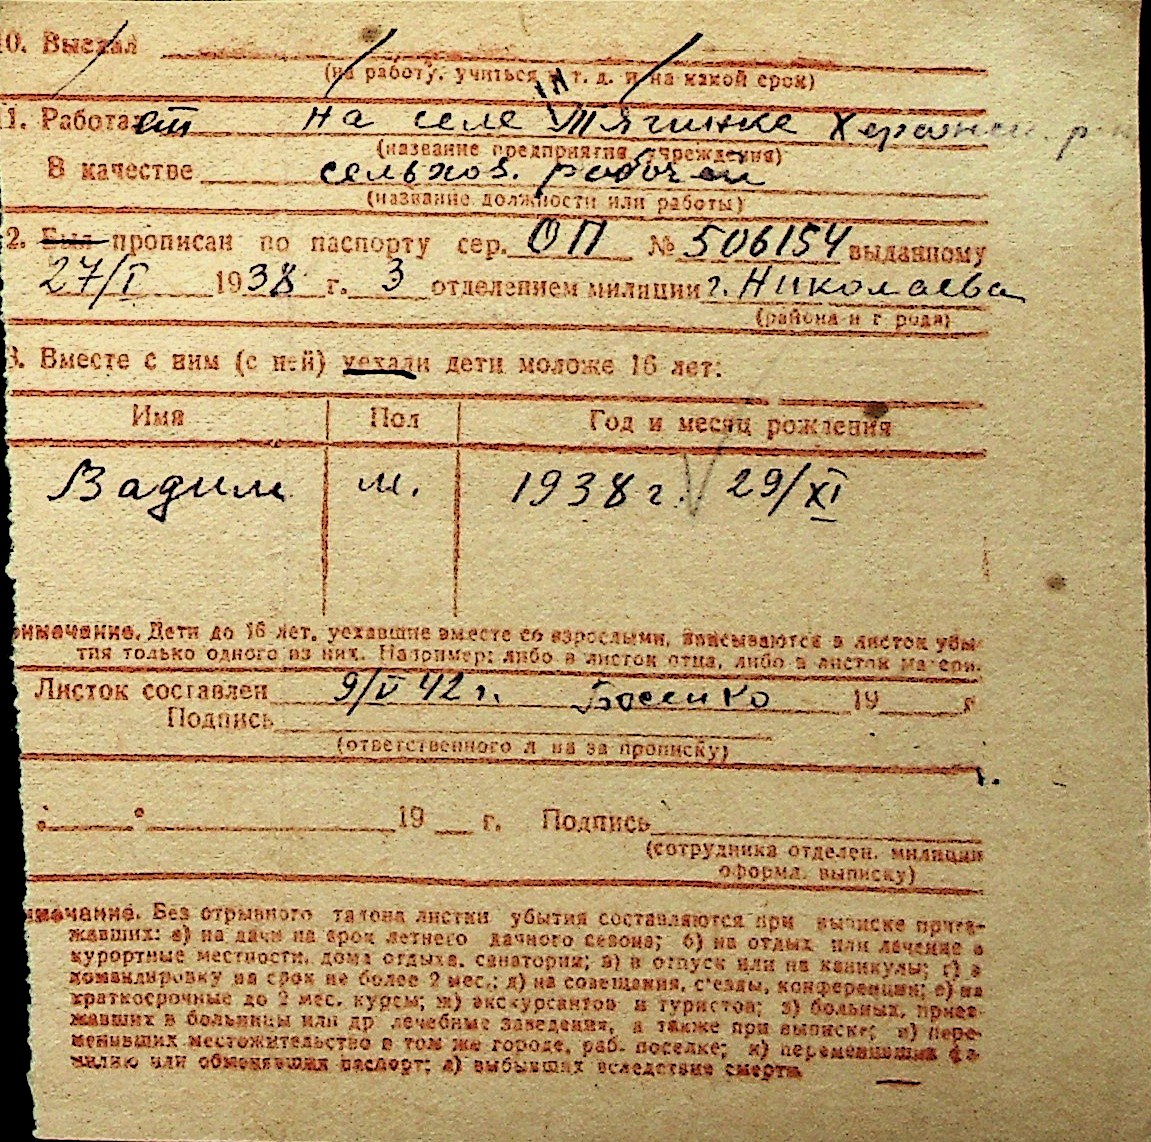 10. Выехал
(на работу, учиться и т. д. и на какой срок)
11. Работает на селе Тягинке Херсонск р-н
(название предприятия, учреждения)
В качестве сельхоз. рабочей
(название должности или работы)
2. Был прописан по паспорту сер. ОП № 506154 выданному
27/I 1938 г. 3 отделением милиции г. Николаева
(района и города)
3. Вместе с ним (с ней) уехали дети моложе 16 лет:
Имя Пол Год и месяц рождения
Вадим м. 1938 г. 29/XI
имечание. Дети до 16 лет, уехавшие вместе со взрослыми, вписываются в листок убы-
тия только одного из них. Например: либо в листок отца, либо в листок матери.
Листок составлен 9/V 42 г. 19 г
Подпись
(ответственного л на за прописку)
19 г. Подпись
(сотрудника отделен. милиции
оформл. выписку)
имечание. Без отрывного талона листки убытия составляются при выписке приез-
жавших: а) на дачи на срок летнего дачного сезона; б) на отдых или лечение в
курортные местности, дома отдыха, санатории; в) в отпуск или на каникулы; г) в
командировку на срок не более 2 мес.; д) на совещания, с'езды, конференции; е) на
краткосрочные до 2 мес. курсы; ж) экскурсантов и туристов; з) больных, приез-
жавших в больницы или др лечебные заведения, а также при выписке; и) пере-
менивших местожительство в том же городе, раб. поселке; к) переменивших фа-
милию или обменявших паспорт; л) выбывших вследствие смерти.